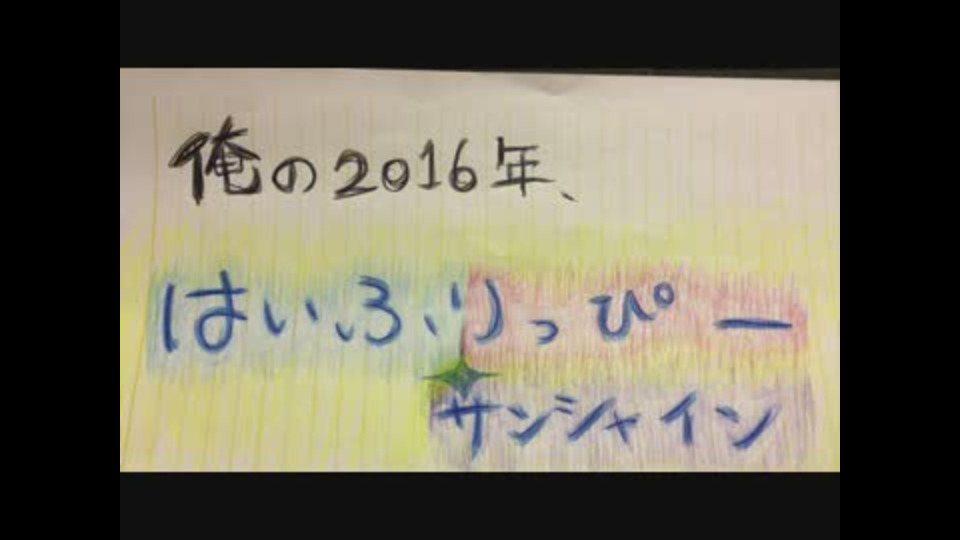 俺の2016年、
はいふりっぴー
サンシャイン